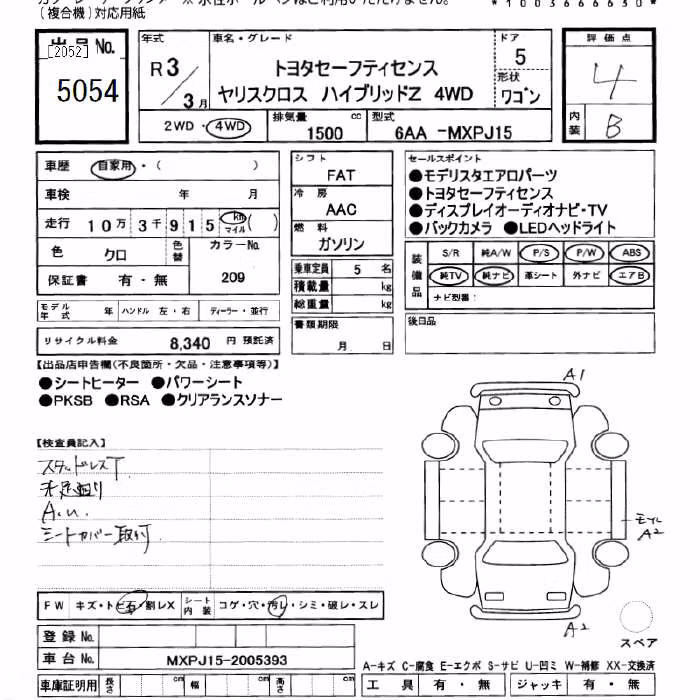 (複合機)対応用紙
[2052]
5054
年式
R3/3月
車名・グレード
トヨタセーフティセンス
ヤリスクロス ハイブリッドZ 4WD
ドア
5
形状
ワゴン
評価点
4
内装
B
2WD・4WD
排気量
1500
cc
型式
6AA -MXPJ15
車歴
自家用・( )
車検
年 月
走行
10万3千915
km
マイル
( )
色
クロ
色替
カラーNo.
209
保証書
有・無
モデル年式
年
ハンドル
左・右
ディーラー・並行
リサイクル料金
8,340 円 預託済
シフト
FAT
冷房
AAC
燃料
ガソリン
乗車定員
5 名
積載量
kg
総重量
kg
書類期限
月 日
セールスポイント
●モデリスタエアロパーツ
●トヨタセーフティセンス
●ディスプレイオーディオナビ・TV
●バックカメラ ●LEDヘッドライト
装備品
S/R 純A/W P/S P/W ABS
純TV 純ナビ 革シート 外ナビ エアB
ナビ型番:
後日品
【出品店申告欄(不良箇所・欠品・注意事項等)】
●シートヒーター ●パワーシート
●PKSB ●RSA ●クリアランスソナー
【検査員記入】
スタッドレスT
A.u
シートカバー取付
A1
モール
A2
A2
スペア
FW
キズ・トビ石/割レX
シート内装
コゲ・穴・汚レ・シミ・破レ・スレ
登録No.
車台No.
MXPJ15-2005393
車庫証明用
長さ
cm
幅
cm
高さ
cm
A-キズ C-腐食 E-エクボ S-サビ U-凹ミ W-補修 XX-交換済
工具
有・無
ジャッキ
有・無